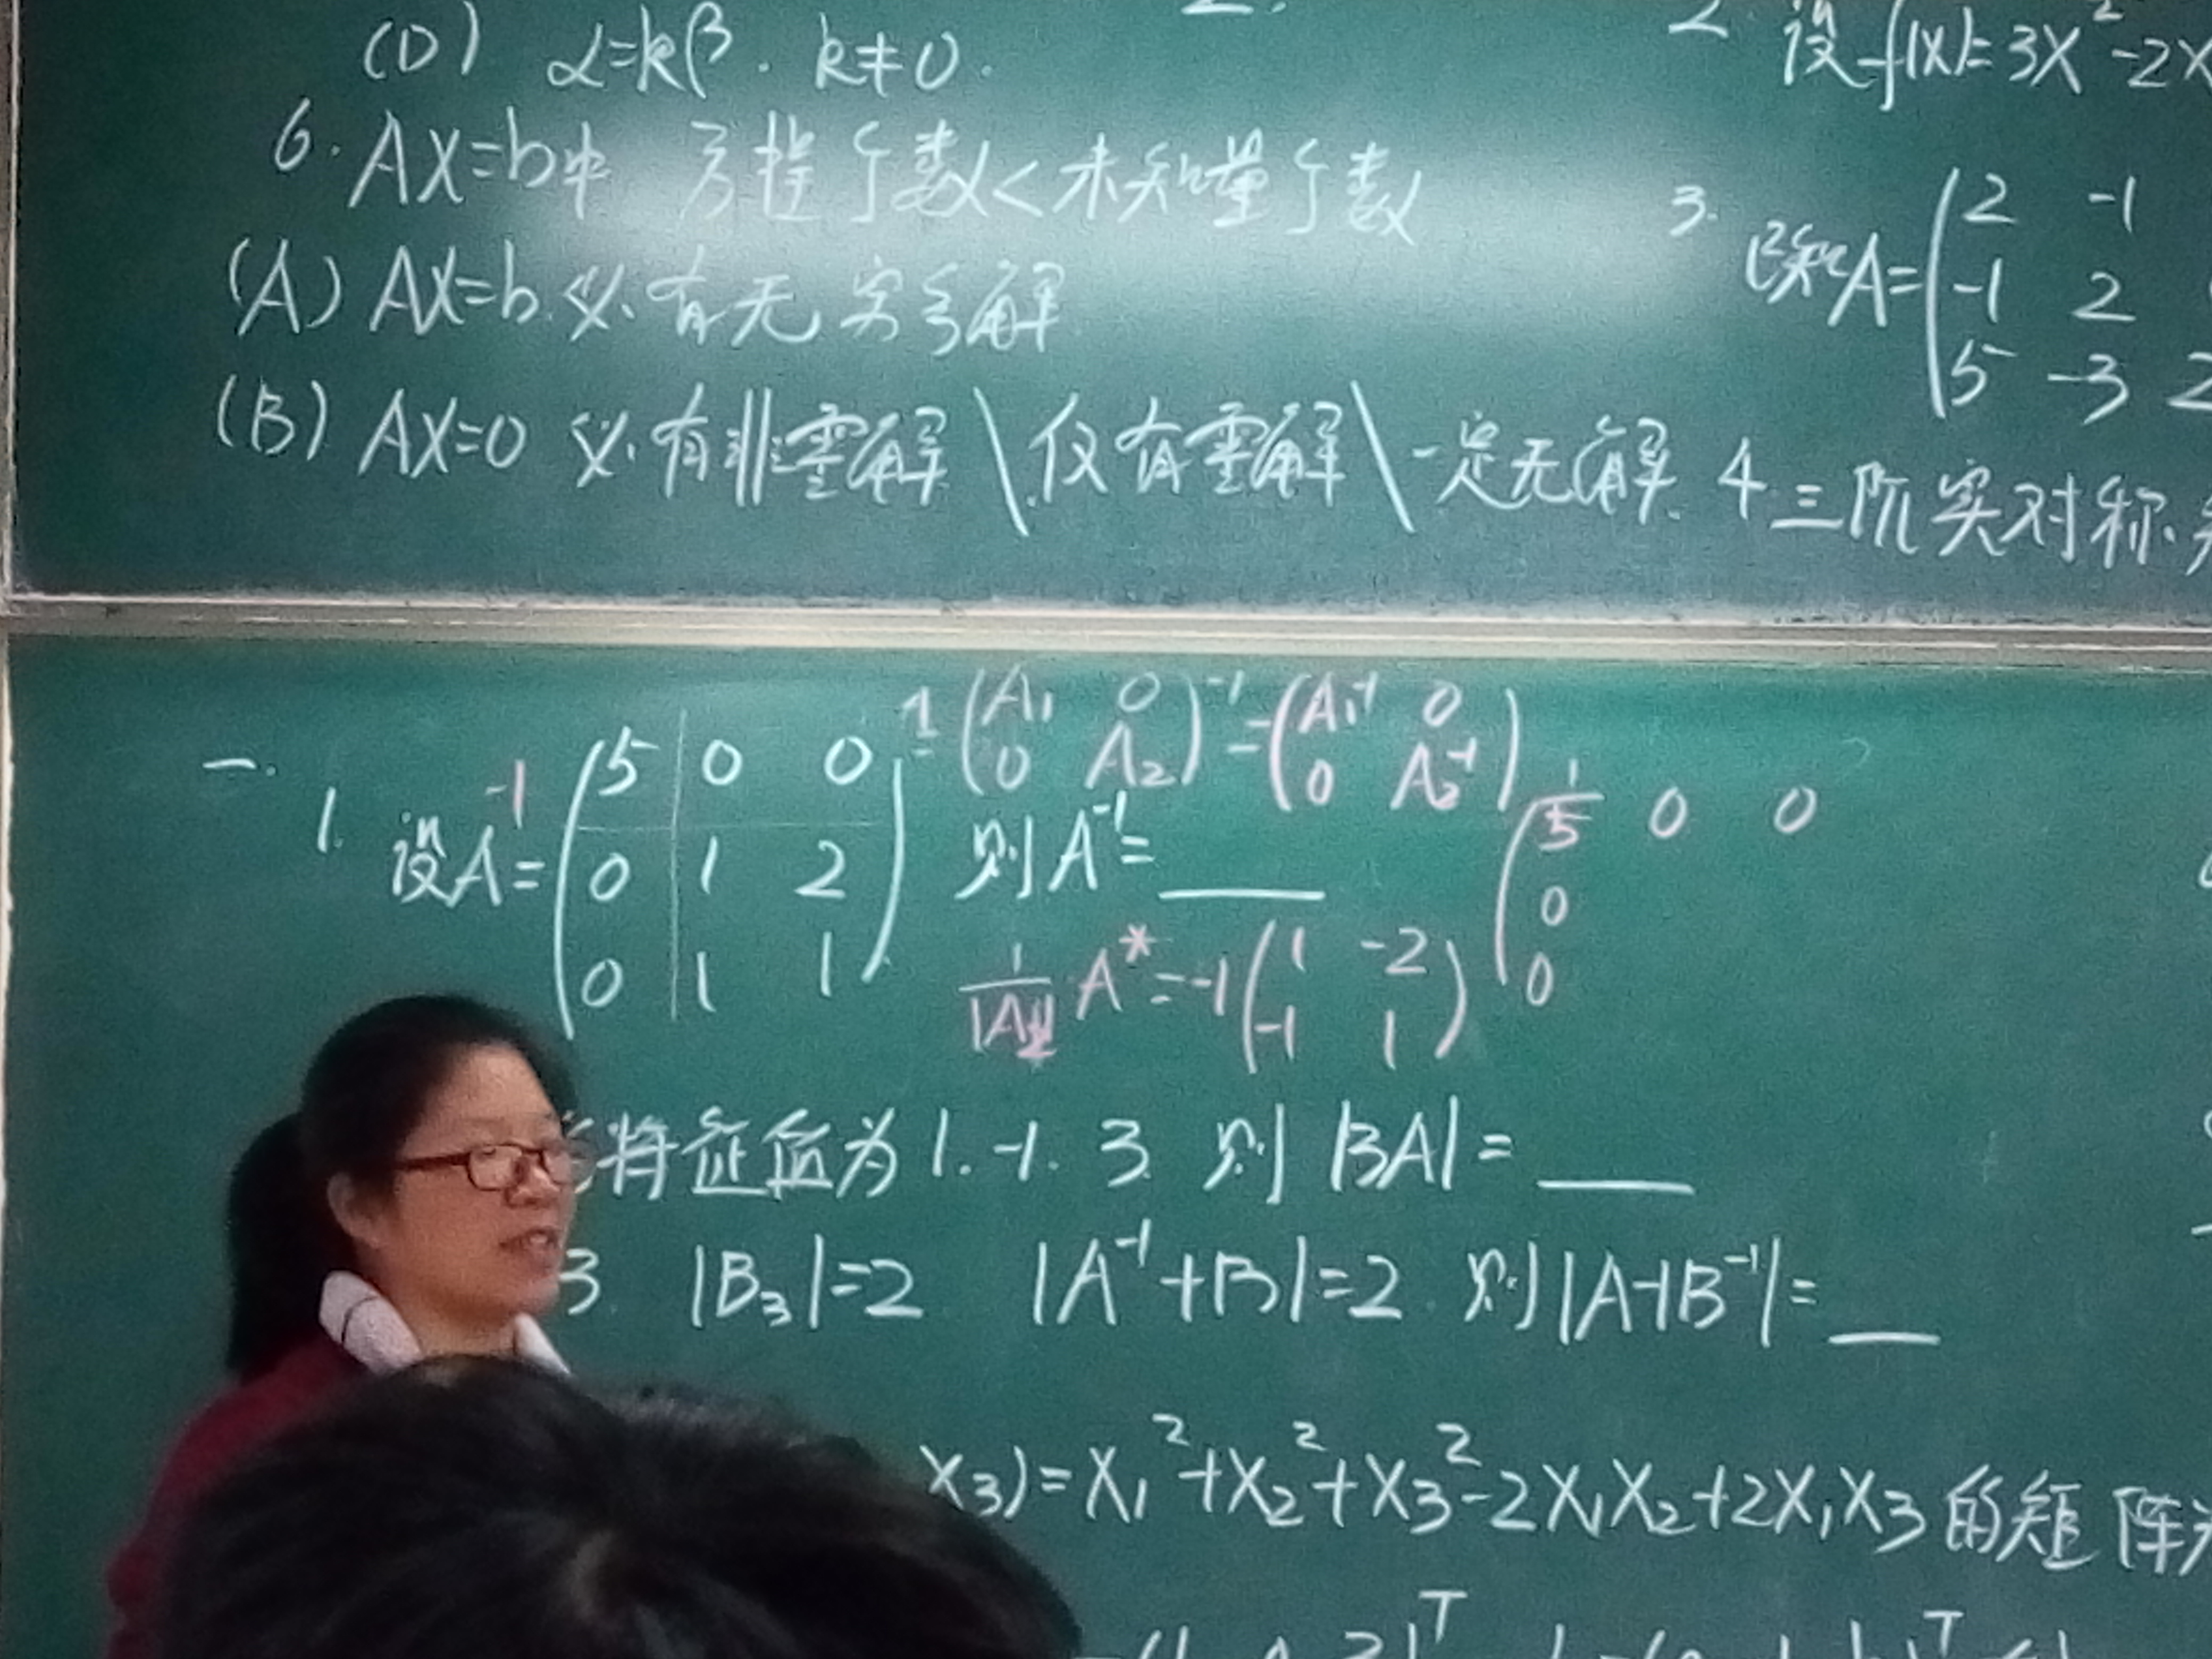 (D) α=kβ. k≠0.
6. AX=b中 方程个数<未知量个数
(A) AX=b 必有无穷多解
(B) AX=0 必有非零解\仅有零解\一定无解.
2. 设f(x)=3X²-2X
3. 已知A=(2 -1
-1 2
5 -3 2
4 三阶实对称
一.
1. 设A⁻¹=(5 0 0
0 1 2
0 1 1)
则A⁻¹=____
(A₁ 0
0 A₂)⁻¹=(A₁⁻¹ 0
0 A₂⁻¹)
1/|A₂| A*=-1(1 -2
-1 1)
(1/5 0 0
0
0
特征值为1.-1. 3. 则|BA|=____
3. |B₃|=2 |A⁻¹+B|=2. 则|A+B⁻¹|=__
X₃)=X₁²+X₂²+X₃²-2X₁X₂+2X₁X₃的矩阵